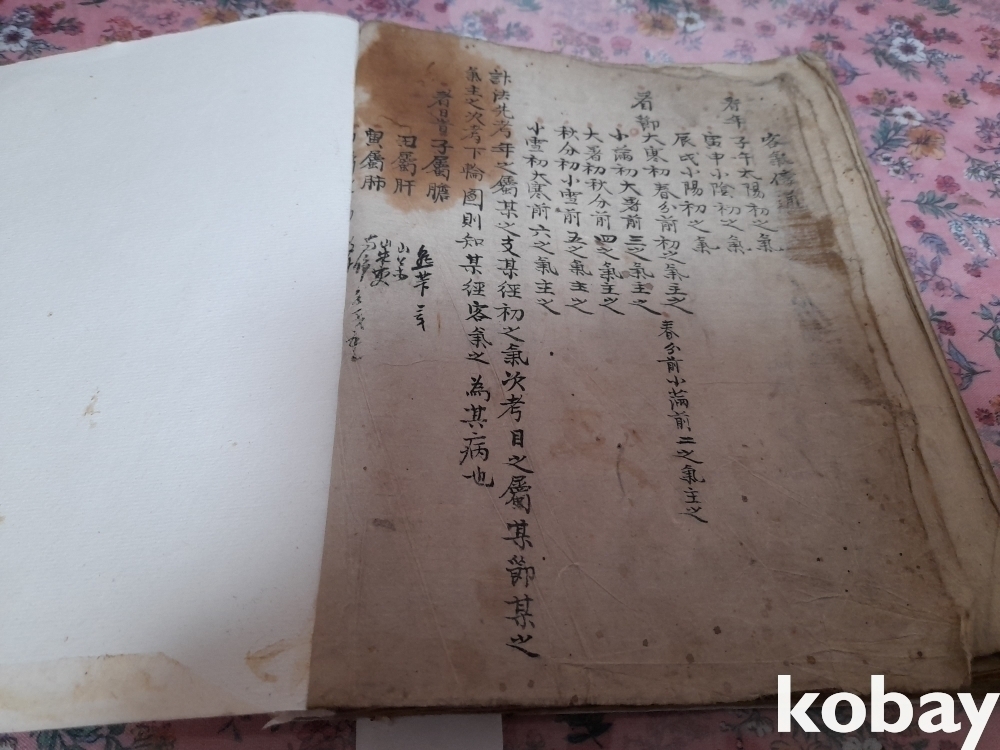 客氣傳通
看年 子午太陽初之氣
寅申小陰初之氣
辰戌小陽初之氣
看節 大寒初春分前初之氣主之 春分前小滿前二之氣主之
小滿初大暑前三之氣主之
大暑初秋分前四之氣主之
秋分初小雪前五之氣主之
小雪初大寒前六之氣主之
訃法先考年之屬某之支某經初之氣次考日之屬某節某之
氣主之次考下輪圖則知某經客氣之為其病也
看日 子屬膽
丑屬肝
寅屬肺
kobay